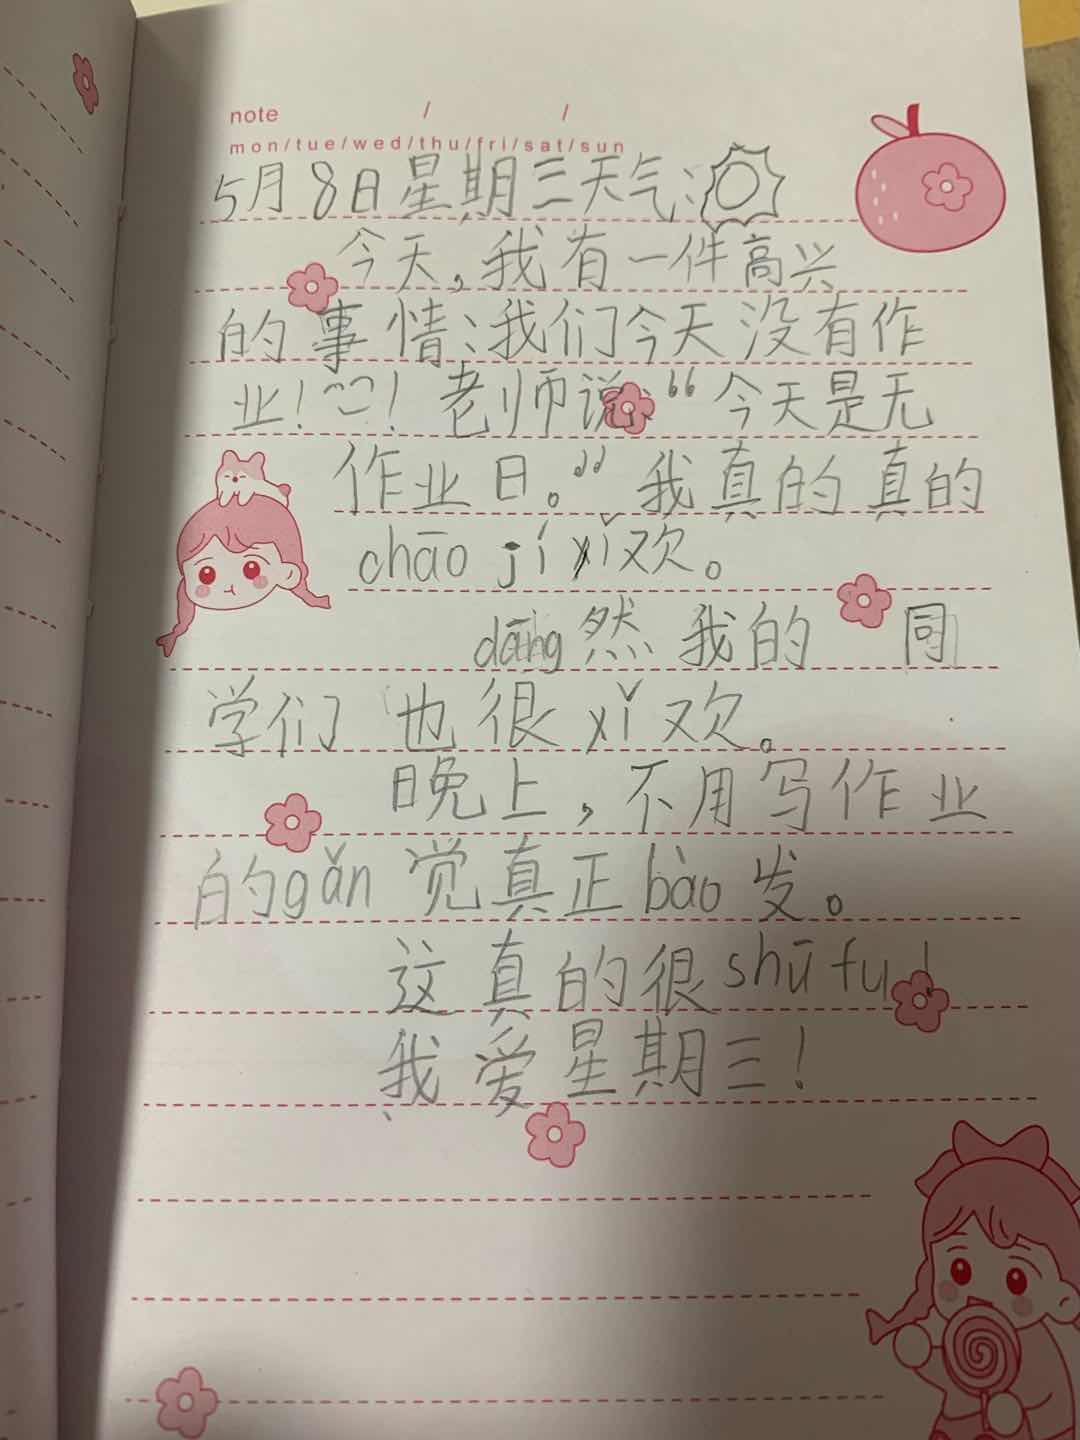 note / /
mon/tue/wed/thu/fri/sat/sun
5月8日星期三天气:
今天,我有一件高兴
的事情:我们今天没有作
业!!老师说:“今天是无
作业日。”我真的真的
chāo jí xǐ欢。
dāng然我的同
学们也很xǐ欢。
晚上,不用写作业
的gǎn觉真正bào发。
这真的很shū fu!
我爱星期三!